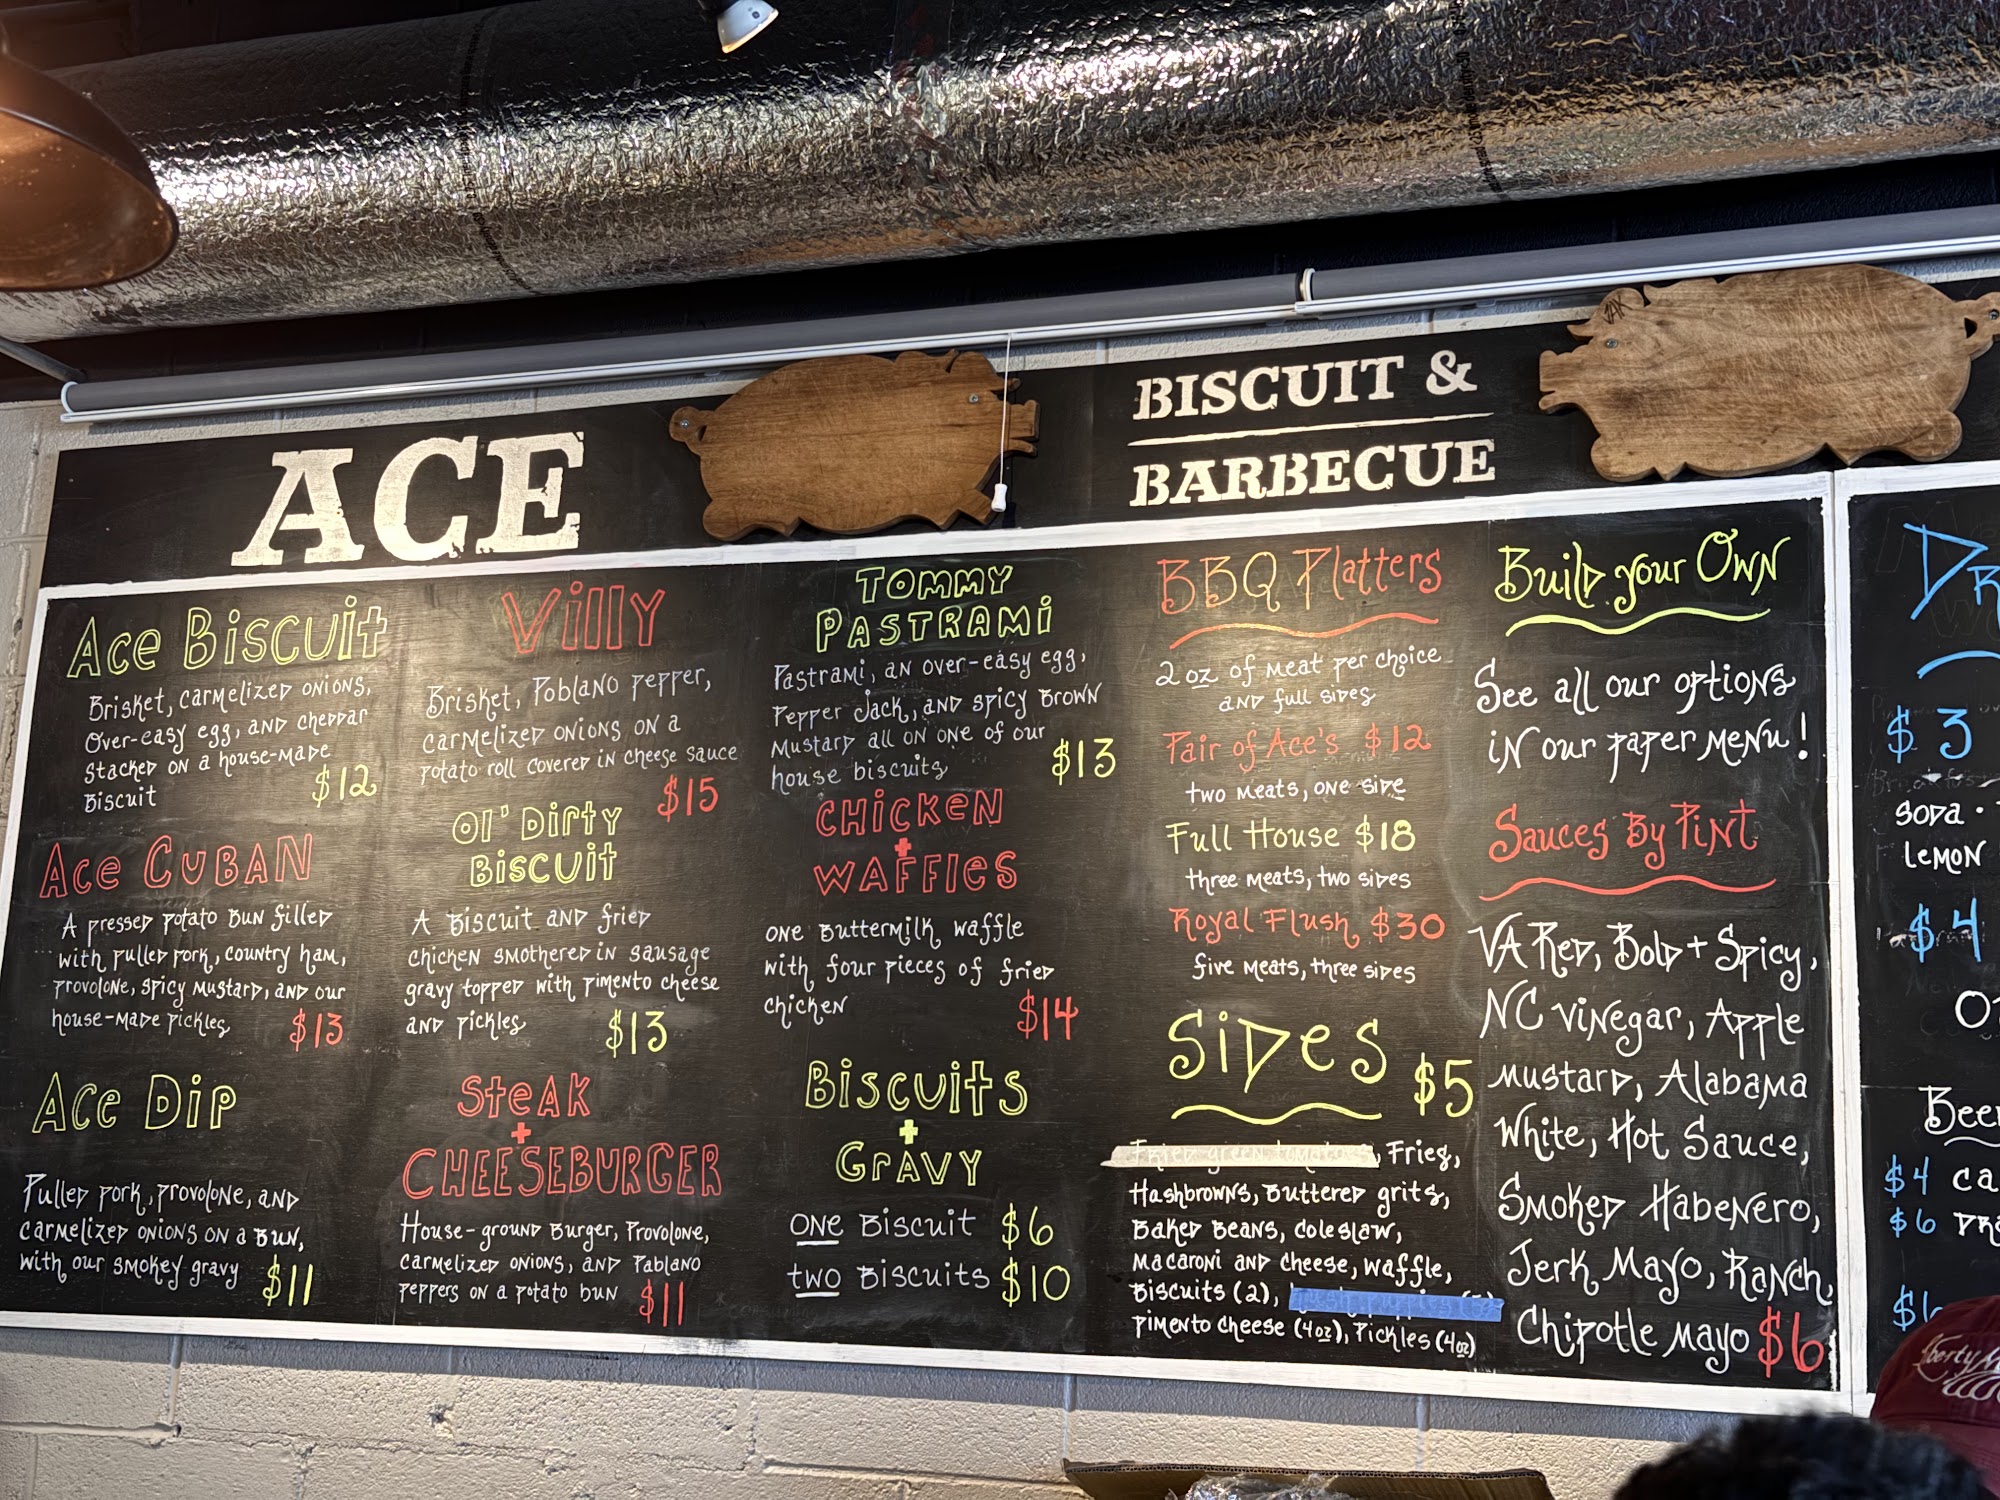 ACE
BISCUIT &
BARBECUE
Ace Biscuit
Brisket, carmelized onions,
over-easy egg, and cheddar
stacked on a house-made
biscuit
$12
Ace Cuban
A pressed potato bun filled
with pulled pork, country ham,
provolone, spicy mustard, and our
house-made pickles
$13
Ace Dip
Pulled pork, provolone, and
carmelized onions on a bun,
with our smokey gravy
$11
Villy
Brisket, Poblano pepper,
carmelized onions on a
potato roll covered in cheese sauce
$15
Ol' Dirty
Biscuit
A biscuit and fried
chicken smothered in sausage
gravy topped with pimento cheese
and pickles
$13
Steak
+
Cheeseburger
House-ground Burger, Provolone,
carmelized onions, and Pablano
peppers on a potato bun
$11
Tommy
Pastrami
Pastrami, an over-easy egg,
Pepper Jack, and spicy brown
mustard all on one of our
house biscuits
$13
Chicken
+
Waffles
One buttermilk waffle
with four pieces of fried
chicken
$14
Biscuits
+
Gravy
one Biscuit $6
two Biscuits $10
BBQ Platters
2 oz of meat per choice
and full sides
Pair of Ace's $12
two meats, one side
Full House $18
three meats, two sides
Royal Flush $30
five meats, three sides
Sides $5
Fried green tomatoes, Fries,
Hashbrowns, Buttered grits,
Baked Beans, Coleslaw,
Macaroni and cheese, waffle,
Biscuits (2),
pimento cheese (4oz), Pickles (4oz)
Build your Own
See all our options
in our paper menu!
Sauces By Pint
VA Red, Bold + Spicy,
NC vinegar, Apple
mustard, Alabama
White, Hot Sauce,
Smoked Habenero,
Jerk Mayo, Ranch,
Chipotle Mayo $6
$3
Soda ·
Lemon
$4
Beer
$4 Ca
$6 Dra
JAX